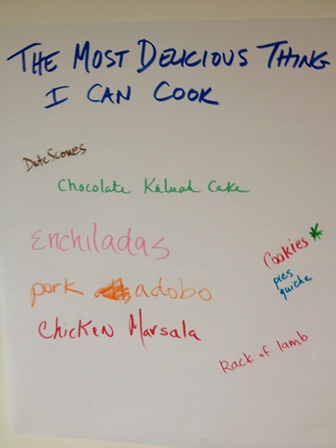 THE MOST DELICIOUS THING
I CAN COOK
Date Scones
Chocolate Kaluah Cake
Enchiladas
Cookies
pres
quiche
pork adobo
Chicken Marsala
Rack of lamb